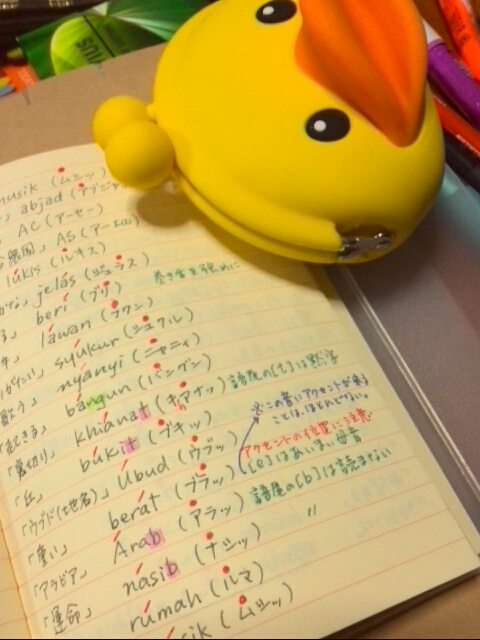 musik (ムシッ)
abjad (アブジャ
AC (アーセー)
合衆国」 AS (アーエス)
lukis (ルキス)
jelas (ジュラス) 巻き舌を強めに
beri (ブリ)
lawan (ラワン)
syukur (シュクル)
nyanyi (ニャニィ)
歌う」 bangun (バングン)
「起きる」 khianat (キアナッ) 語尾の[t]は黙字
「裏切り」 bukit (ブキッ) ※この音にアクセントが来ることは、ほとんどない。
「丘」 Ubud (ウブッ) アクセントの位置に注意
「ウブド(土地名)」 berat (ブラッ) [e]はあいまい母音
「重い」 Arab (アラッ) 語尾の[b]は読まない
「アラビア」 nasib (ナシッ) 〃
「運命」 rumah (ルマ)
sik (ムシッ)